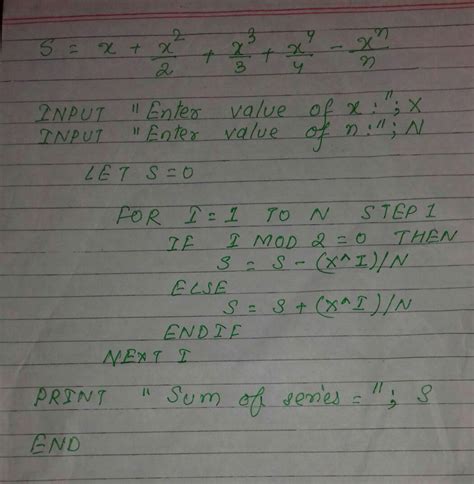 S = x + x²/2 + x³/3 + x⁴/4 - xⁿ/n
INPUT "Enter value of x:"; X
INPUT "Enter value of n:"; N
LET S=0
FOR I=1 TO N STEP 1
IF I MOD 2=0 THEN
S = S-(X^I)/N
ELSE
S = S+(X^I)/N
ENDIF
NEXT I
PRINT "Sum of series="; S
END